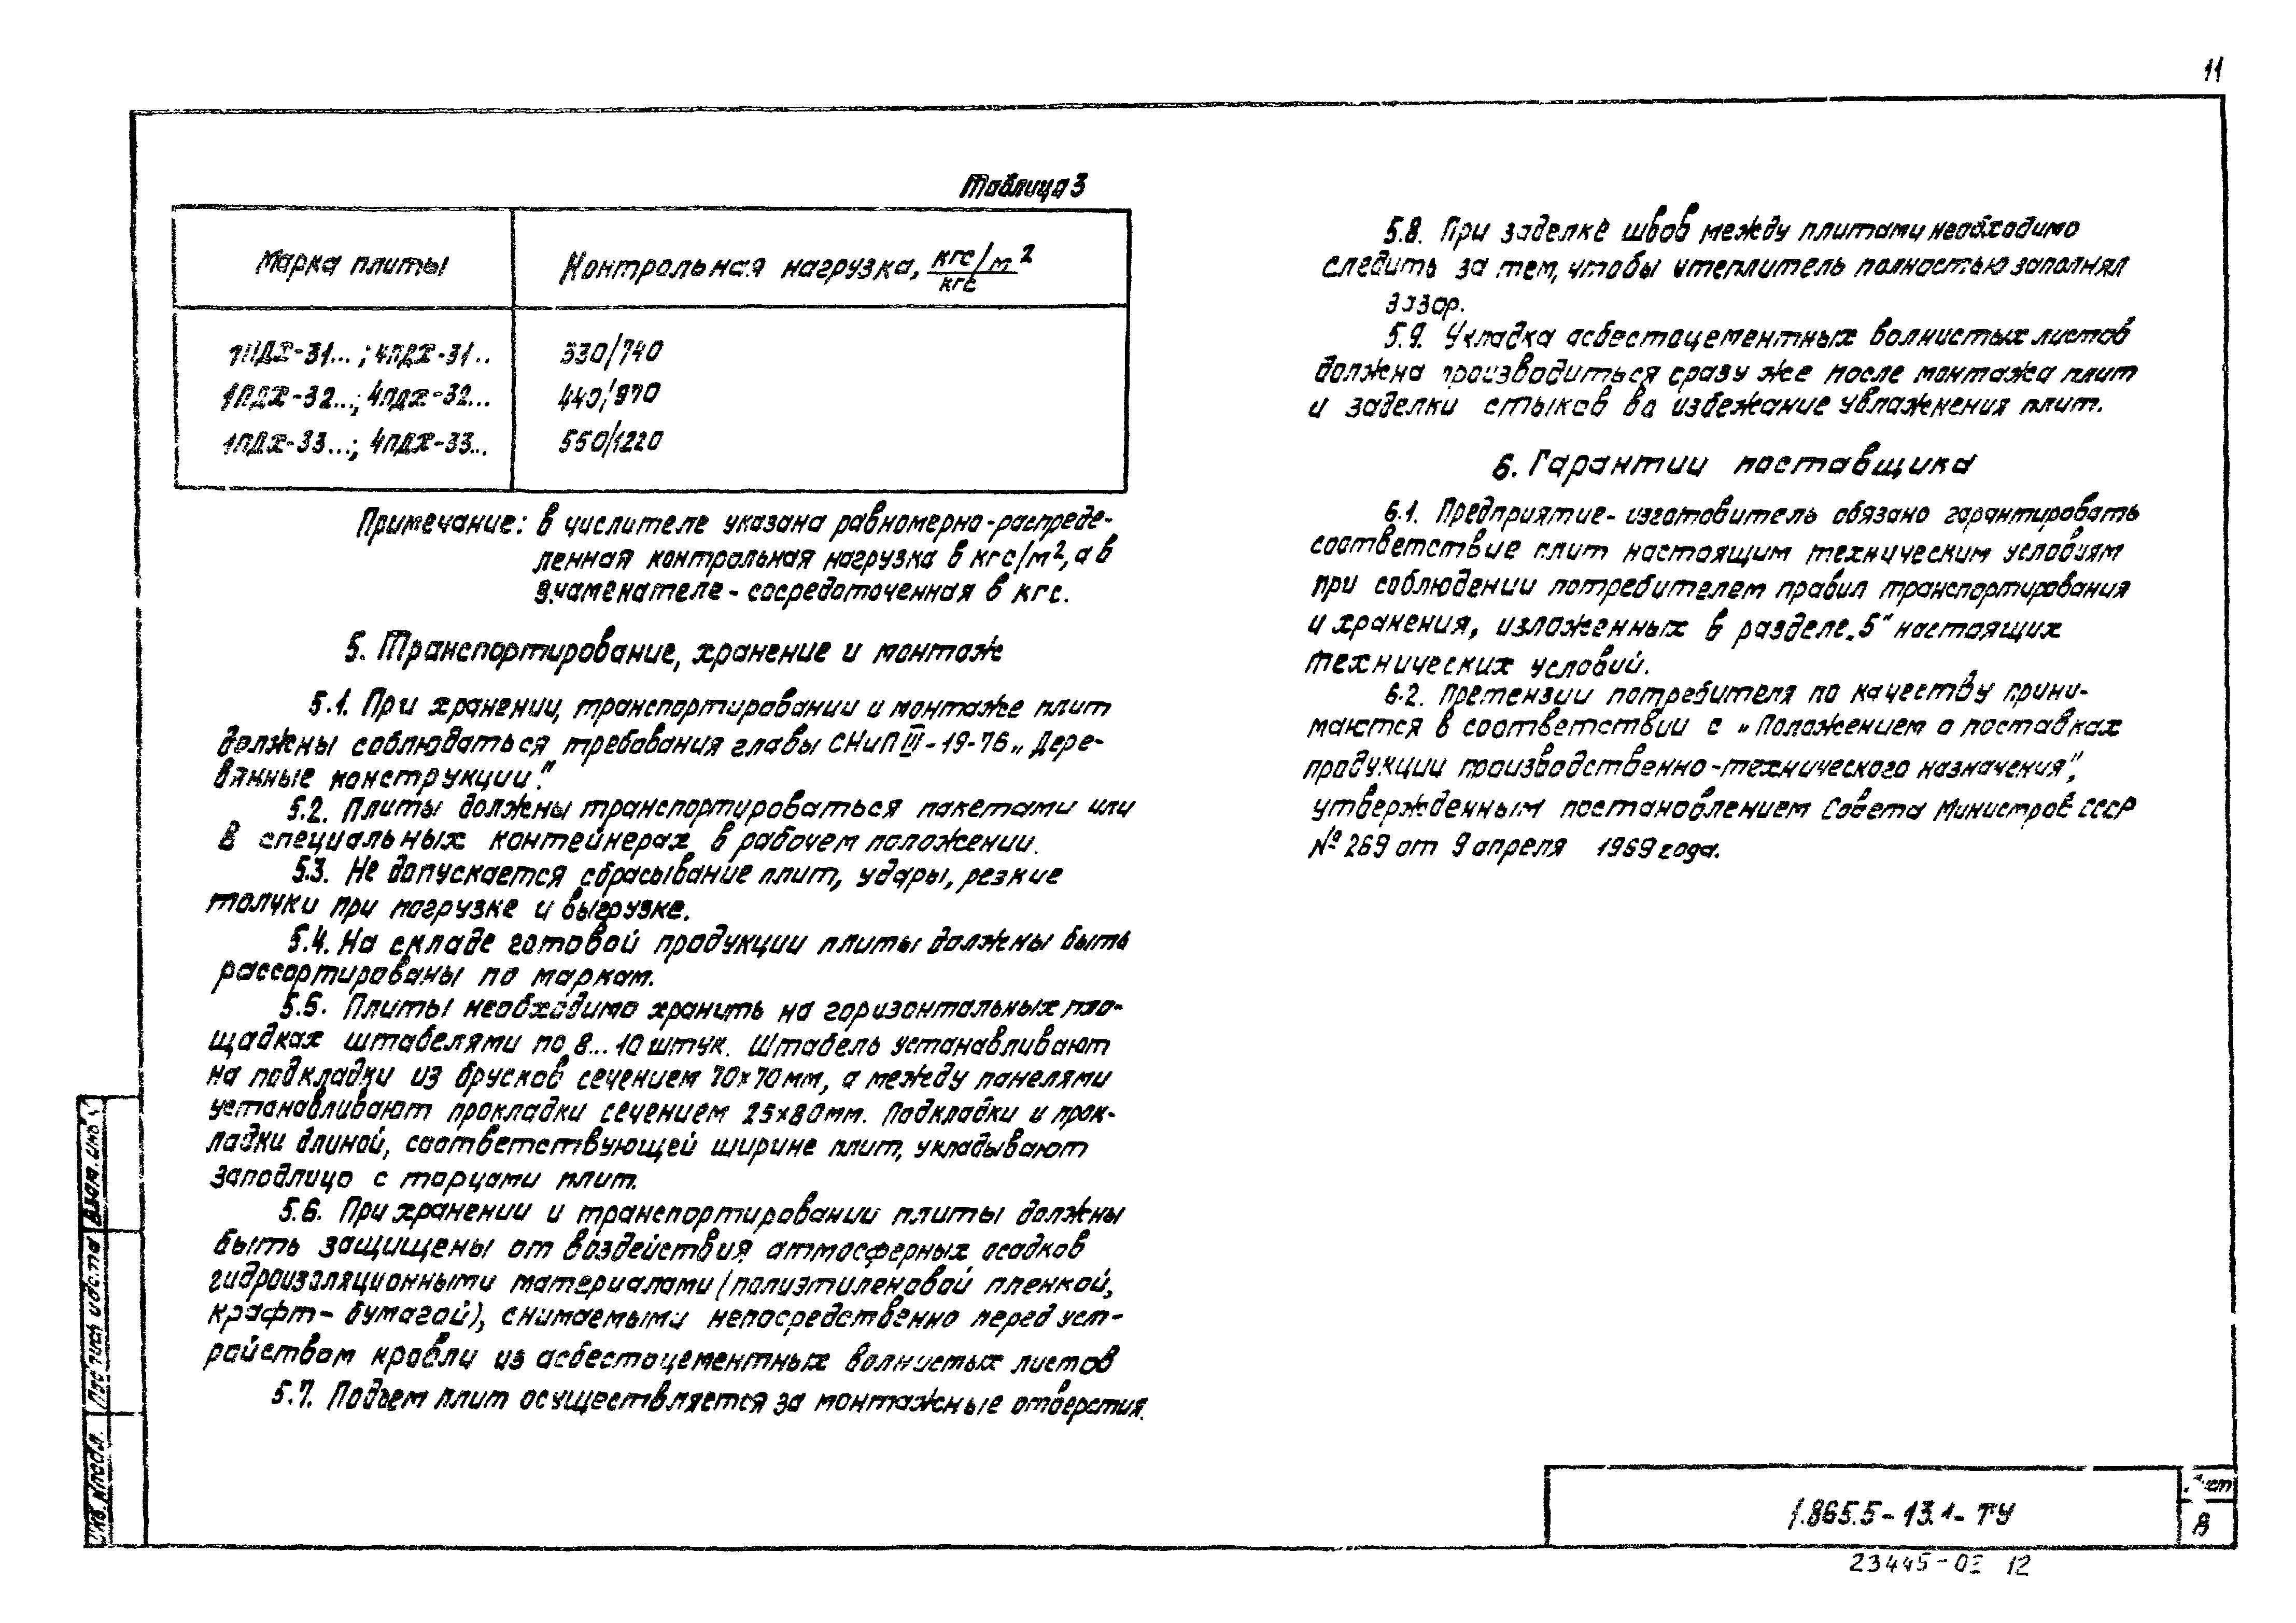 11
Таблица 3
Марка плиты
Контрольная нагрузка, кгс/м²/кгс
1ПДХ-31...; 4ПДХ-31..
330/740
1ПДХ-32...; 4ПДХ-32...
440/970
1ПДХ-33...; 4ПДХ-33..
550/1220
Примечание: в числителе указана равномерно-распреде-
ленная контрольная нагрузка в кгс/м², а в
знаменателе - сосредоточенная в кгс.
5. Транспортирование, хранение и монтаж
5.1. При хранении, транспортировании и монтаже плит
должны соблюдаться требования главы СНиП III-19-76 „Дере-
вянные конструкции."
5.2. Плиты должны транспортироваться пакетами или
в специальных контейнерах в рабочем положении.
5.3. Не допускается сбрасывание плит, удары, резкие
толчки при погрузке и выгрузке.
5.4. На складе готовой продукции плиты должны быть
рассортированы по маркам.
5.5. Плиты необходимо хранить на горизонтальных пло-
щадках штабелями по 8...10 штук. Штабель устанавливают
на подкладки из брусков сечением 70×70мм, а между панелями
устанавливают прокладки сечением 25×80мм. Подкладки и прок-
ладки длиной, соответствующей ширине плит, укладывают
заподлицо с торцами плит.
5.6. При хранении и транспортировании плиты должны
быть защищены от воздействия атмосферных осадков
гидроизоляционными материалами (полиэтиленовой пленкой,
крафт-бумагой), снимаемыми непосредственно перед уст-
ройством кровли из асбестоцементных волнистых листов
5.7. Подъем плит осуществляется за монтажные отверстия.
5.8. При заделке швов между плитами необходимо
следить за тем, чтобы утеплитель полностью заполнял
зазор.
5.9. Укладка асбестоцементных волнистых листов
должна производиться сразу же после монтажа плит
и заделки стыков во избежание увлажнения плит.
6. Гарантии поставщика
6.1. Предприятие-изготовитель обязано гарантировать
соответствие плит настоящим техническим условиям
при соблюдении потребителем правил транспортирования
и хранения, изложенных в разделе „5" настоящих
технических условий.
6.2. Претензии потребителя по качеству прини-
маются в соответствии с „Положением о поставках
продукции производственно-технического назначения",
утвержденным постановлением Совета Министров СССР
№ 269 от 9 апреля 1969 года.
Взам. инв.
Подпись и дата
Инв. № подл.
1.865.5-13.1-ТУ
Лист
8
23445-02 12